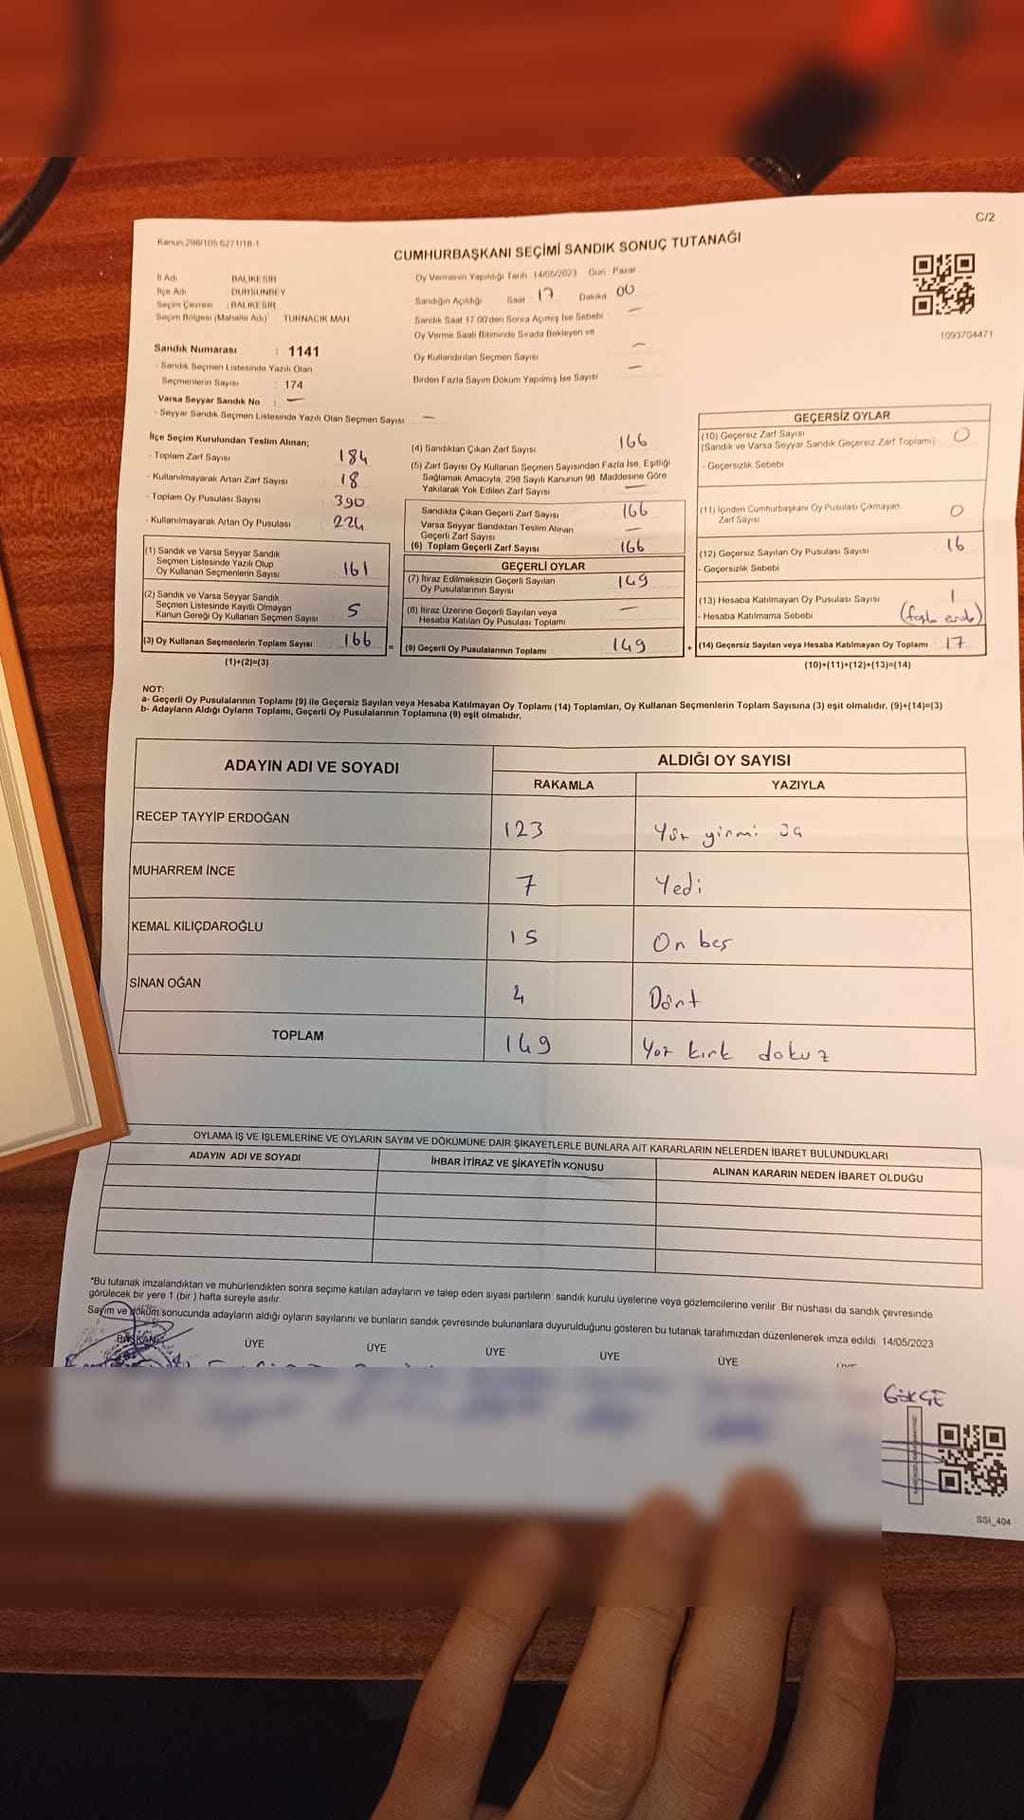 C/2
Kanun 298/105 6271/18-1
CUMHURBAŞKANI SEÇİMİ SANDIK SONUÇ TUTANAĞI
İl Adı BALIKESİR
İlçe Adı DURSUNBEY
Seçim Çevresi : BALIKESİR
Seçim Bölgesi (Mahalle Adı) TURNACIK MAH
Sandık Numarası : 1141
- Sandık Seçmen Listesinde Yazılı Olan
Seçmenlerin Sayısı : 174
Varsa Seyyar Sandık No : —
- Seyyar Sandık Seçmen Listesinde Yazılı Olan Seçmen Sayısı —
Oy Vermenin Yapıldığı Tarih 14/05/2023 Gün Pazar
Sandığın Açıldığı Saat 17 Dakika 00
Sandık Saat 17.00'den Sonra Açılmış İse Sebebi —
Oy Verme Saati Bitiminde Sırada Bekleyen ve
Oy Kullandırılan Seçmen Sayısı —
Birden Fazla Sayım Döküm Yapılmış İse Sayısı —
1093704471
İlçe Seçim Kurulundan Teslim Alınan;
- Toplam Zarf Sayısı 184
- Kullanılmayarak Artan Zarf Sayısı 18
- Toplam Oy Pusulası Sayısı 390
- Kullanılmayarak Artan Oy Pusulası 224
(1) Sandık ve Varsa Seyyar Sandık
Seçmen Listesinde Yazılı Olup
Oy Kullanan Seçmenlerin Sayısı 161
(2) Sandık ve Varsa Seyyar Sandık
Seçmen Listesinde Kayıtlı Olmayan
Kanun Gereği Oy Kullanan Seçmen Sayısı 5
(3) Oy Kullanan Seçmenlerin Toplam Sayısı 166
(1)+(2)=(3)
(4) Sandıktan Çıkan Zarf Sayısı 166
(5) Zarf Sayısı Oy Kullanan Seçmen Sayısından Fazla İse, Eşitliği
Sağlamak Amacıyla, 298 Sayılı Kanunun 98. Maddesine Göre
Yakılarak Yok Edilen Zarf Sayısı —
Sandıkta Çıkan Geçerli Zarf Sayısı 166
Varsa Seyyar Sandıktan Teslim Alınan
Geçerli Zarf Sayısı —
(6) Toplam Geçerli Zarf Sayısı 166
GEÇERLİ OYLAR
(7) İtiraz Edilmeksizin Geçerli Sayılan
Oy Pusulalarının Sayısı 149
(8) İtiraz Üzerine Geçerli Sayılan veya
Hesaba Katılan Oy Pusulası Toplamı —
= (9) Geçerli Oy Pusulalarının Toplamı 149
GEÇERSİZ OYLAR
(10) Geçersiz Zarf Sayısı
(Sandık ve Varsa Seyyar Sandık Geçersiz Zarf Toplamı) 0
- Geçersizlik Sebebi
(11) İçinden Cumhurbaşkanı Oy Pusulası Çıkmayan
Zarf Sayısı 0
(12) Geçersiz Sayılan Oy Pusulası Sayısı 16
- Geçersizlik Sebebi
(13) Hesaba Katılmayan Oy Pusulası Sayısı 1
- Hesaba Katılmama Sebebi
+ (14) Geçersiz Sayılan veya Hesaba Katılmayan Oy Toplamı 17
(10)+(11)+(12)+(13)=(14)
NOT:
a- Geçerli Oy Pusulalarının Toplamı (9) ile Geçersiz Sayılan veya Hesaba Katılmayan Oy Toplamı (14) Toplamları, Oy Kullanan Seçmenlerin Toplam Sayısına (3) eşit olmalıdır. (9)+(14)=(3)
b- Adayların Aldığı Oyların Toplamı, Geçerli Oy Pusulalarının Toplamına (9) eşit olmalıdır.
ADAYIN ADI VE SOYADI ALDIĞI OY SAYISI
RAKAMLA YAZIYLA
RECEP TAYYİP ERDOĞAN 123 Yüz yirmi üç
MUHARREM İNCE 7 Yedi
KEMAL KILIÇDAROĞLU 15 On beş
SİNAN OĞAN 4 Dört
TOPLAM 149 Yüz kırk dokuz
OYLAMA İŞ VE İŞLEMLERİNE VE OYLARIN SAYIM VE DÖKÜMÜNE DAİR ŞİKAYETLERLE BUNLARA AİT KARARLARIN NELERDEN İBARET BULUNDUKLARI
ADAYIN ADI VE SOYADI İHBAR İTİRAZ VE ŞİKAYETİN KONUSU ALINAN KARARIN NEDEN İBARET OLDUĞU
*Bu tutanak imzalandıktan ve mühürlendikten sonra seçime katılan adayların ve talep eden siyasi partilerin sandık kurulu üyelerine veya gözlemcilerine verilir. Bir nüshası da sandık çevresinde
görülecek bir yere 1 (bir ) hafta süreyle asılır.
Sayım ve döküm sonucunda adayların aldığı oyların sayılarını ve bunların sandık çevresinde bulunanlara duyurulduğunu gösteren bu tutanak tarafımızdan düzenlenerek imza edildi. 14/05/2023
BAŞKAN ÜYE ÜYE ÜYE ÜYE ÜYE
GÖKÇE
SSI_404